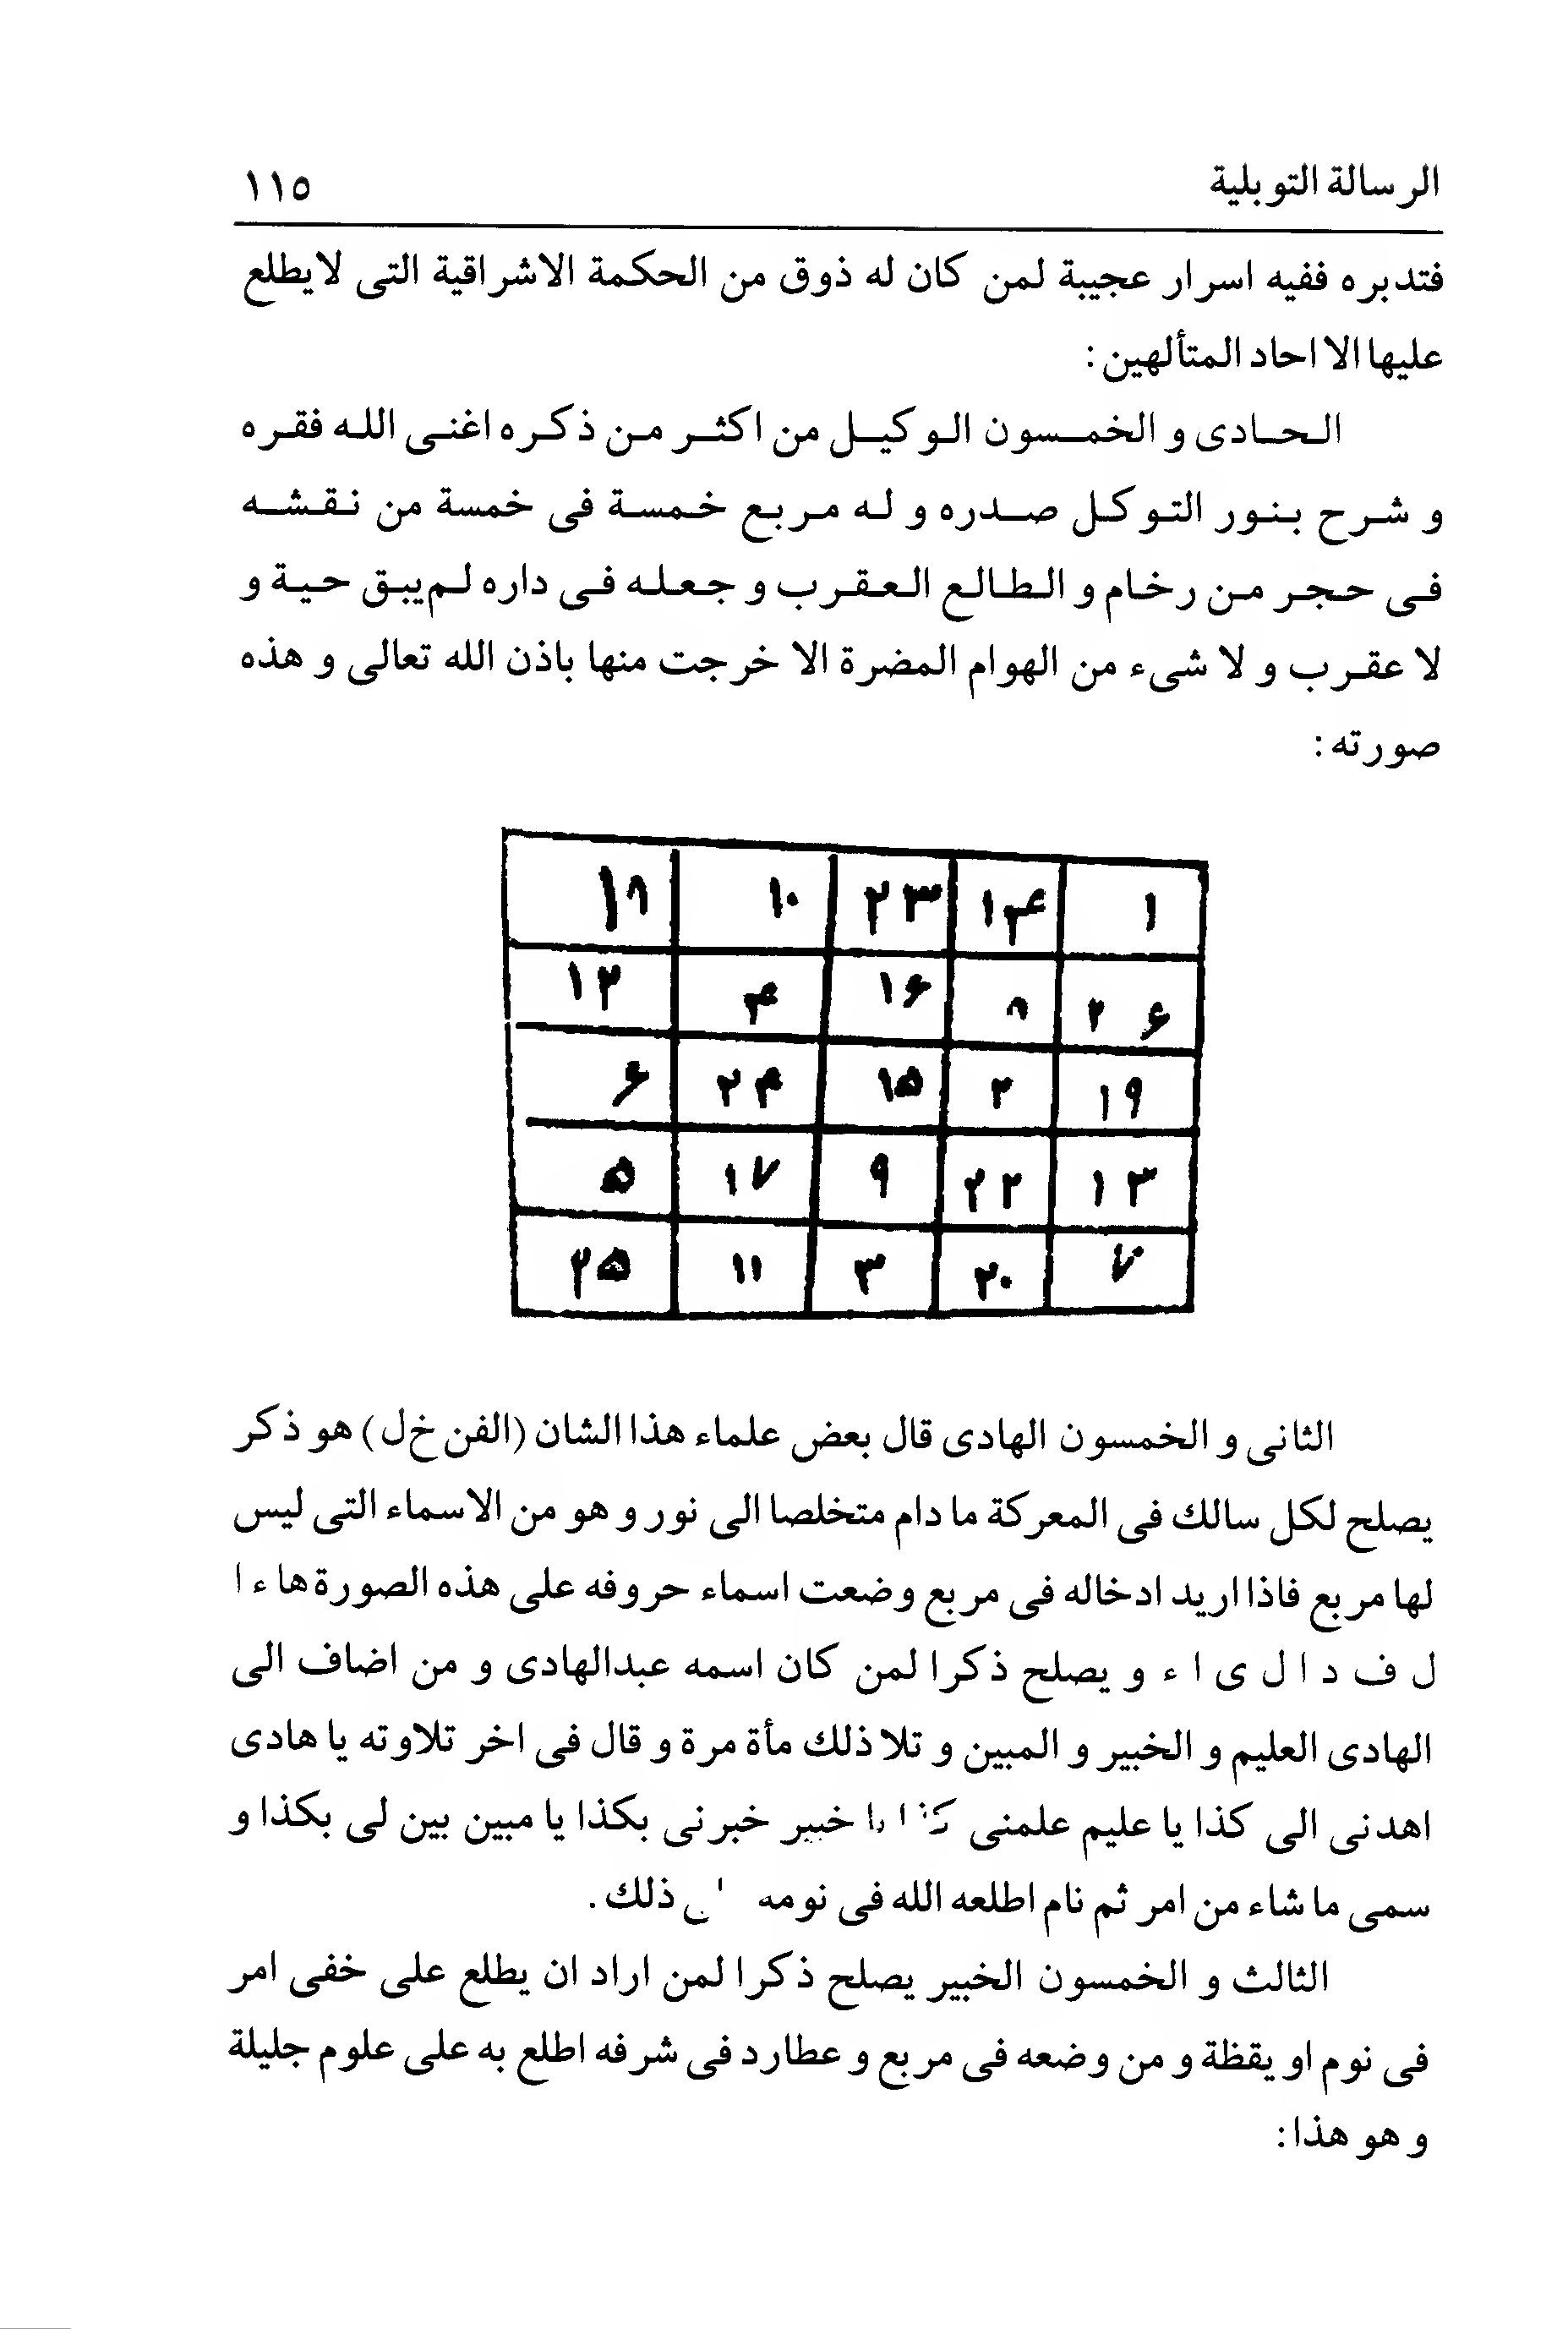 الرسالة التوبلية ١١٥
فتدبره ففيه اسرار عجيبة لمن كان له ذوق من الحكمة الاشراقية التى لايطلع
عليها الا احاد المتألهين :
الحادى و الخمسون الوكيل من اكثر من ذكره اغنى الله فقره
و شرح بنور التوكل صدره و له مربع خمسة فى خمسة من نقشه
فى حجر من رخام و الطالع العقرب و جعله فى داره لم‌يبق حية و
لا عقرب و لا شىء من الهوام المضرة الا خرجت منها باذن الله تعالى و هذه
صورته :
١ ١۴ ٢٣ ١٠ ١٨
٢۶ ٨ ١۶ ۴ ١٢
١٩ ٢ ١۵ ٢۴ ۶
١٣ ٢٢ ٩ ١٧ ۵
٧ ٢٠ ٣ ١١ ٢۵
الثانى و الخمسون الهادى قال بعض علماء هذا الشان (الفن خ‌ل) هو ذكر
يصلح لكل سالك فى المعركة ما دام متخلصا الى نور و هو من الاسماء التى ليس
لها مربع فاذا اريد ادخاله فى مربع وضعت اسماء حروفه على هذه الصورة ها ء ا
ل ف د ا ل ى ا ء و يصلح ذكرا لمن كان اسمه عبدالهادى و من اضاف الى
الهادى العليم و الخبير و المبين و تلا ذلك مأة مرة و قال فى اخر تلاوته يا هادى
اهدنى الى كذا يا عليم علمنى كذا يا خبير خبرنى بكذا يا مبين بين لى بكذا و
سمى ما شاء من امر ثم نام اطلعه الله فى نومه ذلك .
الثالث و الخمسون الخبير يصلح ذكرا لمن اراد ان يطلع على خفى امر
فى نوم او يقظة و من وضعه فى مربع و عطارد فى شرفه اطلع به على علوم جليلة
و هو هذا :